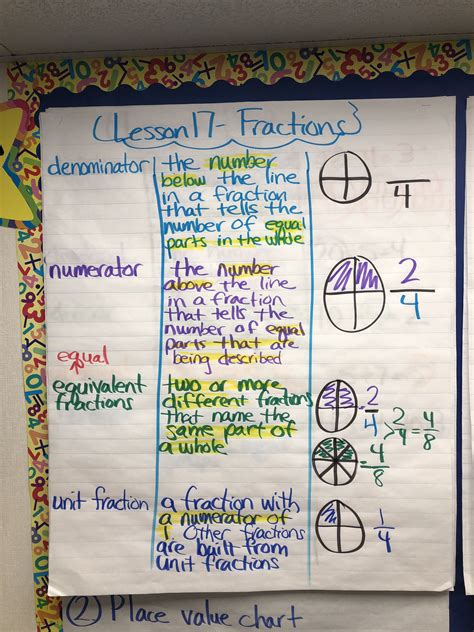 Lesson 17- Fractions
denominator
the number
below the line
in a fraction
that tells the
number of equal
parts in the whole
4
numerator
the number
above the line
in a fraction
that tells the
number of equal
parts that are
being described
2
4
equal
equivalent
fractions
two or more
different fractions
that name the
same part of
a whole
2
4
=4
8
2
4
=
4
8
unit fraction
a fraction with
a numerator of
1 Other fractions
are built from
unit fractions
1
4
2 Place value chart